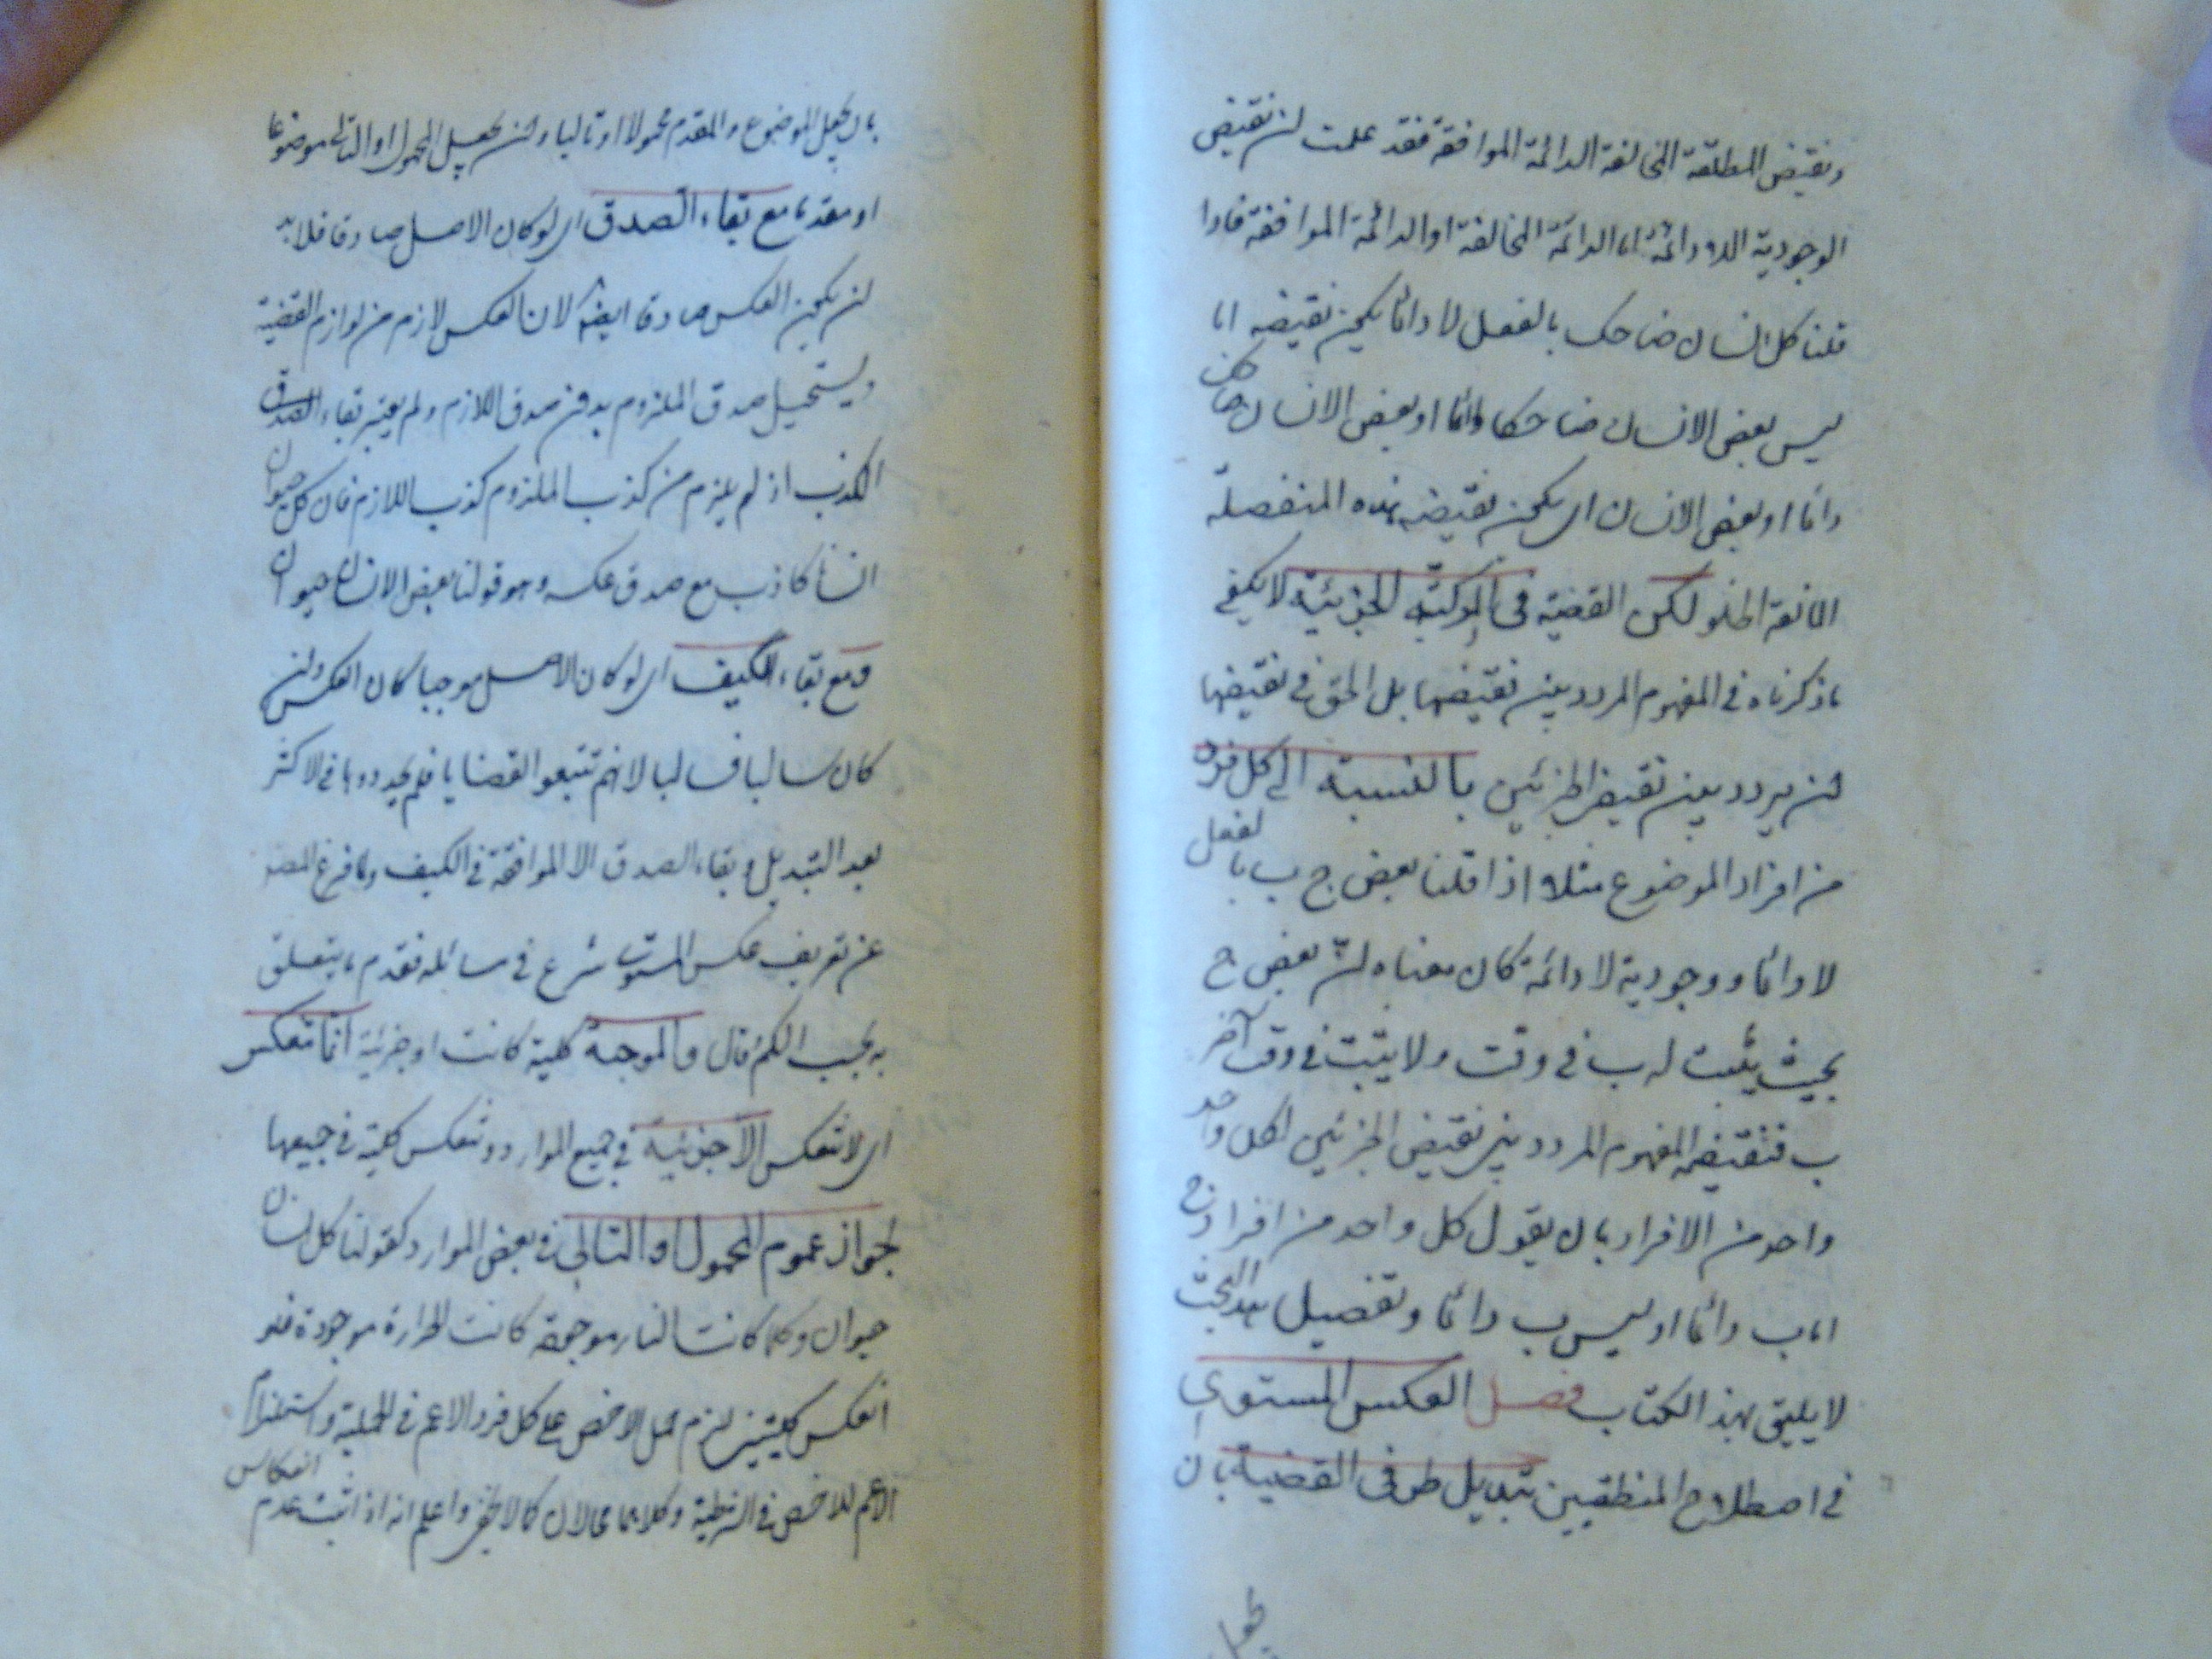 ونقيض المطلقة المخالفة الدائمة الموافقة فقد علمت ان نقيض
الوجودية اللادائمة اما الدائمة المخالفة او الدائمة الموافقة فاذا
قلنا كل انسان ضاحك بالفعل لا دائما يكون نقيضه اما
ليس بعض الانسان ضاحكا دائما او بعض الانسان ضاحك
دائما او بعض الانسان اى يكون نقيضه هذه المنفصلة
المانعة الخلو لكن القضية فى المركبة الجزئية لا يكفى
ما ذكرناه فى المفهوم المردد بين نقيضها بل الحق فى نقيضها
ان يردد بين نقيض الجزئين بالنسبة الى كل فرد
من افراد الموضوع مثلا اذا قلنا بعض ج ب بالفعل
لا دائما ووجودية لا دائمة كان معناه ان بعض ج
بحيث يثبت له ب فى وقت ولا يثبت فى وقت آخر
ب فنقيضه المفهوم المردد بين نقيض الجزئين لكل واحد
واحد من الافراد بان يقول كل واحد من افراد ج
اما ب دائما او ليس ب دائما وتفصيل هذا البحث
لا يليق بهذا الكتاب فصل العكس المستوى
فى اصطلاح المنطقيين تبديل طرفى القضية بان
بان يجعل الموضوع والمقدم محمولا او تاليا وان يجعل المحمول او التالى موضوعا
او مقدما مع بقاء الصدق اى لو كان الاصل صادقا فلا بد
ان يكون العكس صادقا ايضا لان العكس لازم من لوازم القضية
ويستحيل صدق الملزوم بدون صدق اللازم ولم يعتبر بقاء
الكذب اذ لم يلزم من كذب الملزوم كذب اللازم فان كل حيوان
انسان كاذب مع صدق عكسه وهو قولنا بعض الانسان حيوان
ومع بقاء الكيف اى لو كان الاصل موجبا كان العكس وان
كان سالبا فسالبا لانهم تتبعوا القضايا فلم يجدوها فى الاكثر
بعد التبديل وبقاء الصدق الا الموافقة فى الكيف ولما فرغ المصـ
عن تعريف عكس المستوى شرع فى مسائله فقدم ما يتعلق
به بحسب الكم قال والموجبة كلية كانت او جزئية انما تنعكس
اى لا تنعكس الا جزئية فى جميع الموارد وتنعكس كلية فى جميعها
لجواز عموم المحمول او التالى فى بعض الموارد كقولنا كل انسان
حيوان وكلما كانت النار موجودة كانت الحرارة موجودة فلو
انعكس كليتين لزم حمل الاخص على كل فرد الاعم فى الحملية واستلزام
الاعم للاخص فى الشرطية وكلاهما محالان كما لا يخفى واعلم انه اذا اثبت عدم انعكاس